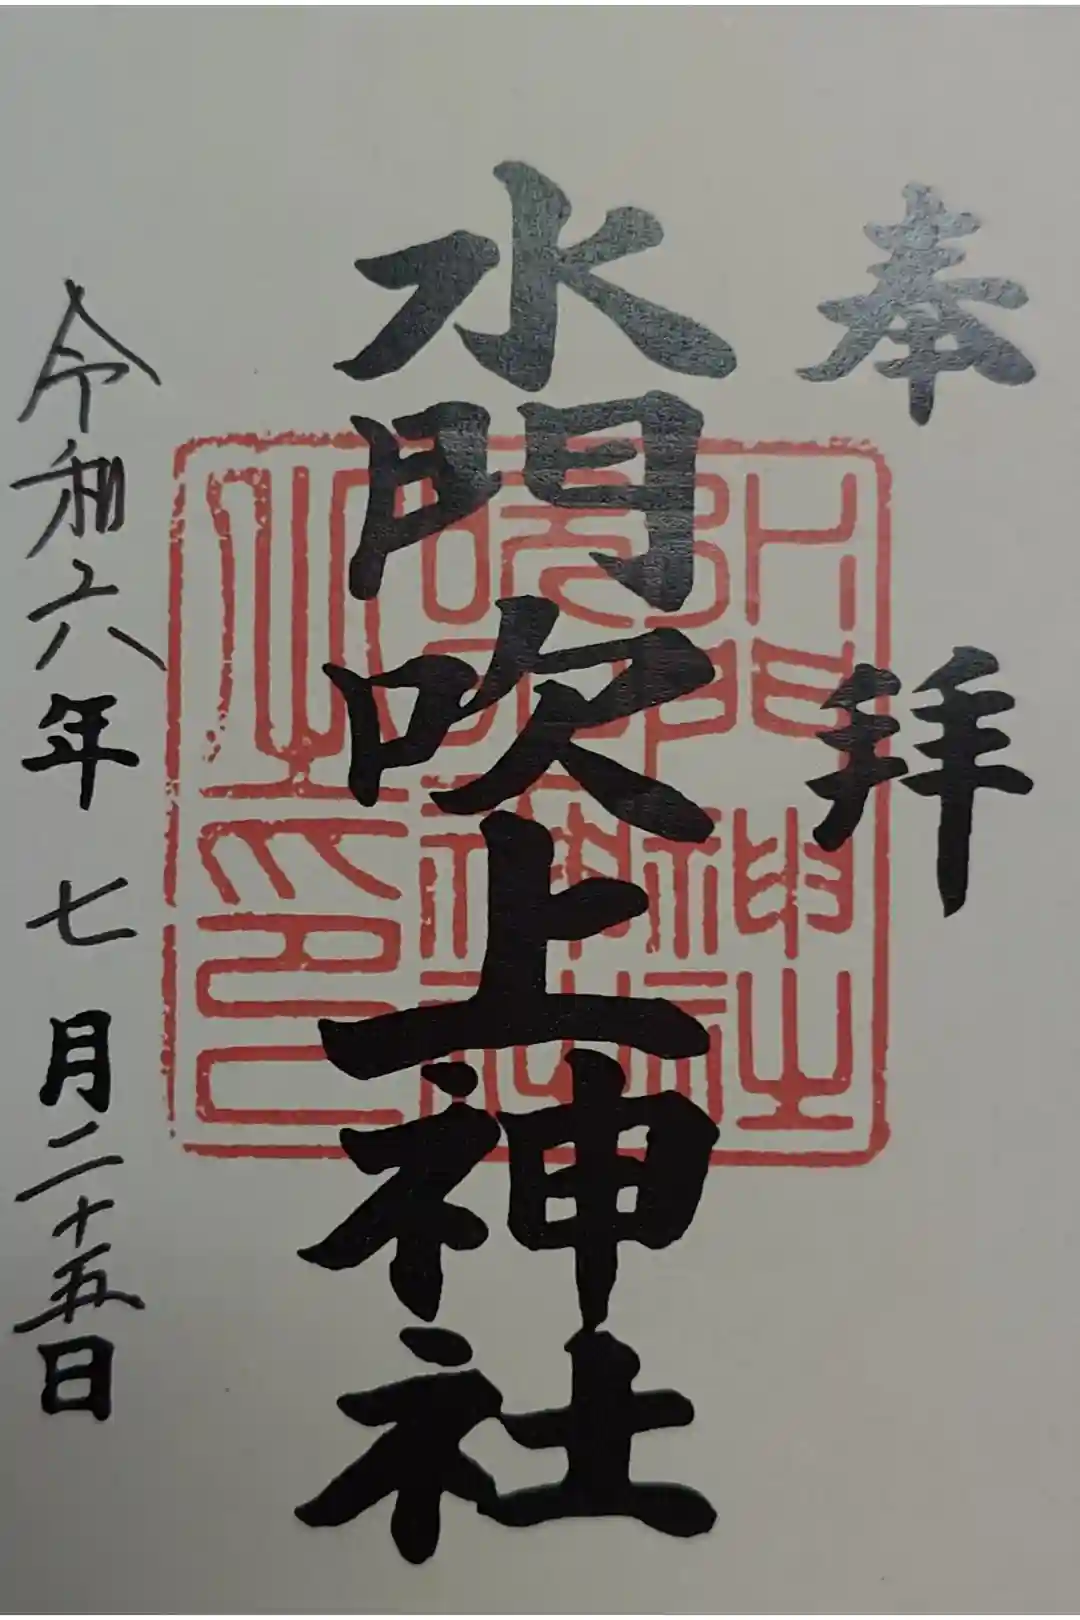 奉拝
水門吹上神社
水門神社
吹上神社
之印
令和六年七月二十五日